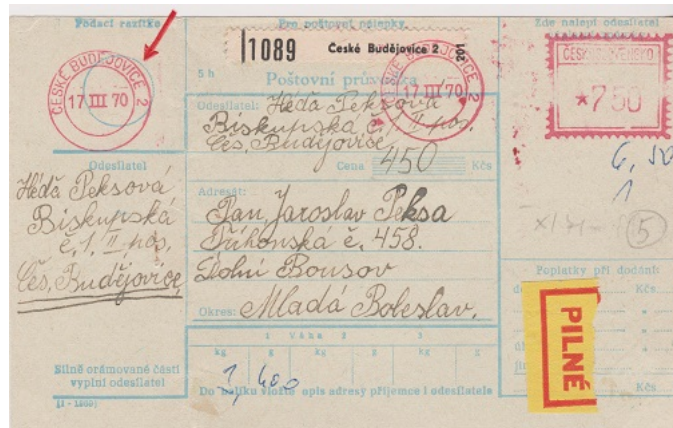 Podací razítko
ČESKÉ BUDĚJOVICE 2
17 III 70
Odesílatel
Héďa Peksová
Biskupská
č. 1. II pos.
Čes. Budějovice
Silně orámované části
vyplní odesílatel
Pro poštovní nálepky
1089 České Budějovice 2 201
5 h Poštovní průvodka
ČESKÉ BUDĚJOVICE 2
17 III 70
Odesílatel: Héďa Peksová
Biskupská č. 1. II pos.
Čes. Budějovice
Cena 450 Kčs
Adresát:
Pan, Jaroslav Peksa
č. 458.
Dolní Bousov
Okres: Mladá Boleslav.
1 Váha 2 3
kg g kg g kg g
1,400
Do balíku vložte opis adresy příjemce i odesílatele
Zde nalepí odesílatel
ČESKOSLOVENSKO
*7 50
6,50
1
5
Poplatky při dodání:
Kčs
PILNÉ
Kčs